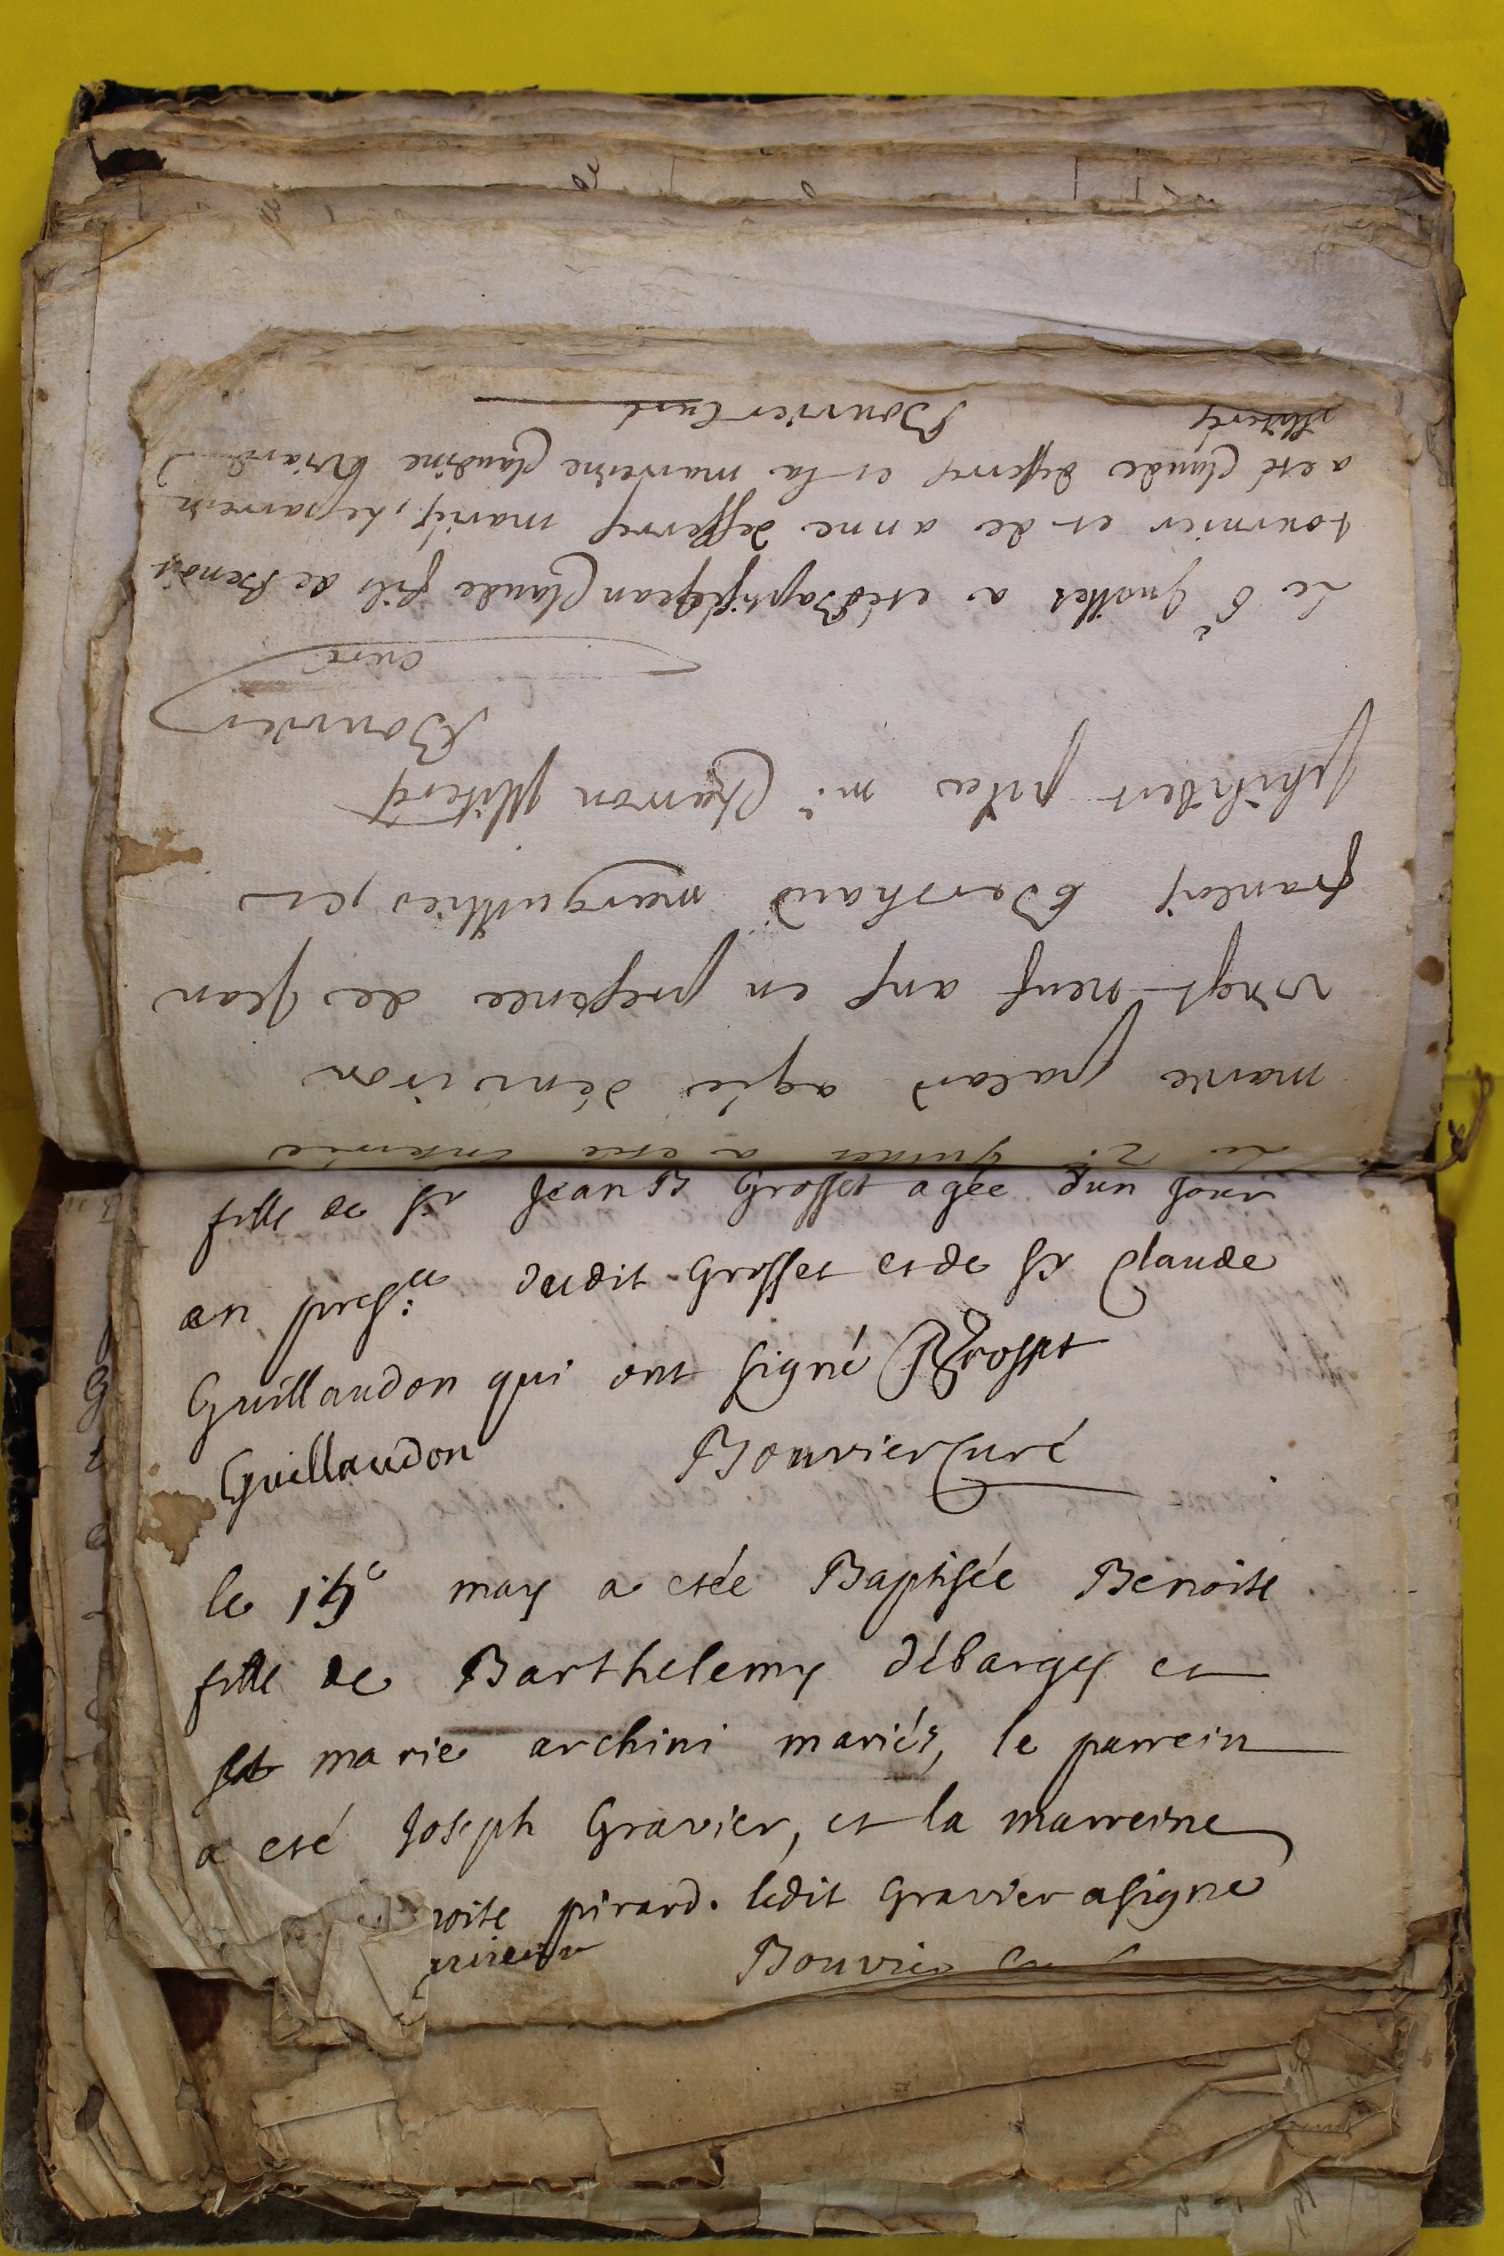 Le 2e Juillet a esté enterrée
marie pacard agée dénviron
vingt-neuf ans en presence de Jean
francois Berthaud marguillier, et
philibert piter mre Charron illiterés
Bouvier
curé
Le 6e Juillet a esté Baptisé Jean Claude fils de Benoit
tournier et de anne desserres mariés, Le parrein
a esté Claude desserres et la marreine Claudine Briard
illiterés Bouvier Curé
fille de Sr Jean B Grosset agée dun jour
en presce dudit Grosset et de Sr Claude
Guillaudon qui ont signé Grosset
Guillaudon Bouvier Curé
le 15e may a esté Baptisée Benoite
fille de Barthelemy débarges et
marie archini mariés, le parrein
a esté Joseph Gravier, et la marreine
noite pirard. ledit Gravier a signé
Bouvier